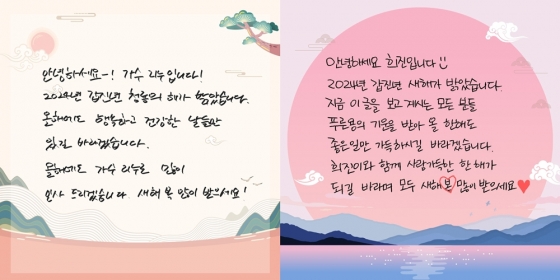 안녕하세요~! 가수 리누입니다!
2024년 갑진년 청룡의 해가 밝았습니다.
올해에도 행복하고 건강한 날들만
있길 바라겠습니다.
올해에도 가수 리누로 많이
인사 드리겠습니다 새해 복 많이 받으세요!
안녕하세요 희진입니다
2024년 갑진년 새해가 밝았습니다.
지금 이 글을 보고 계시는 모든 분들
푸른용의 기운을 받아 올 한해도
좋은일만 가득하시길 바라겠습니다.
희진이와 함께 사랑가득한 한 해가
되길 바라며 모두 새해 복 많이 받으세요